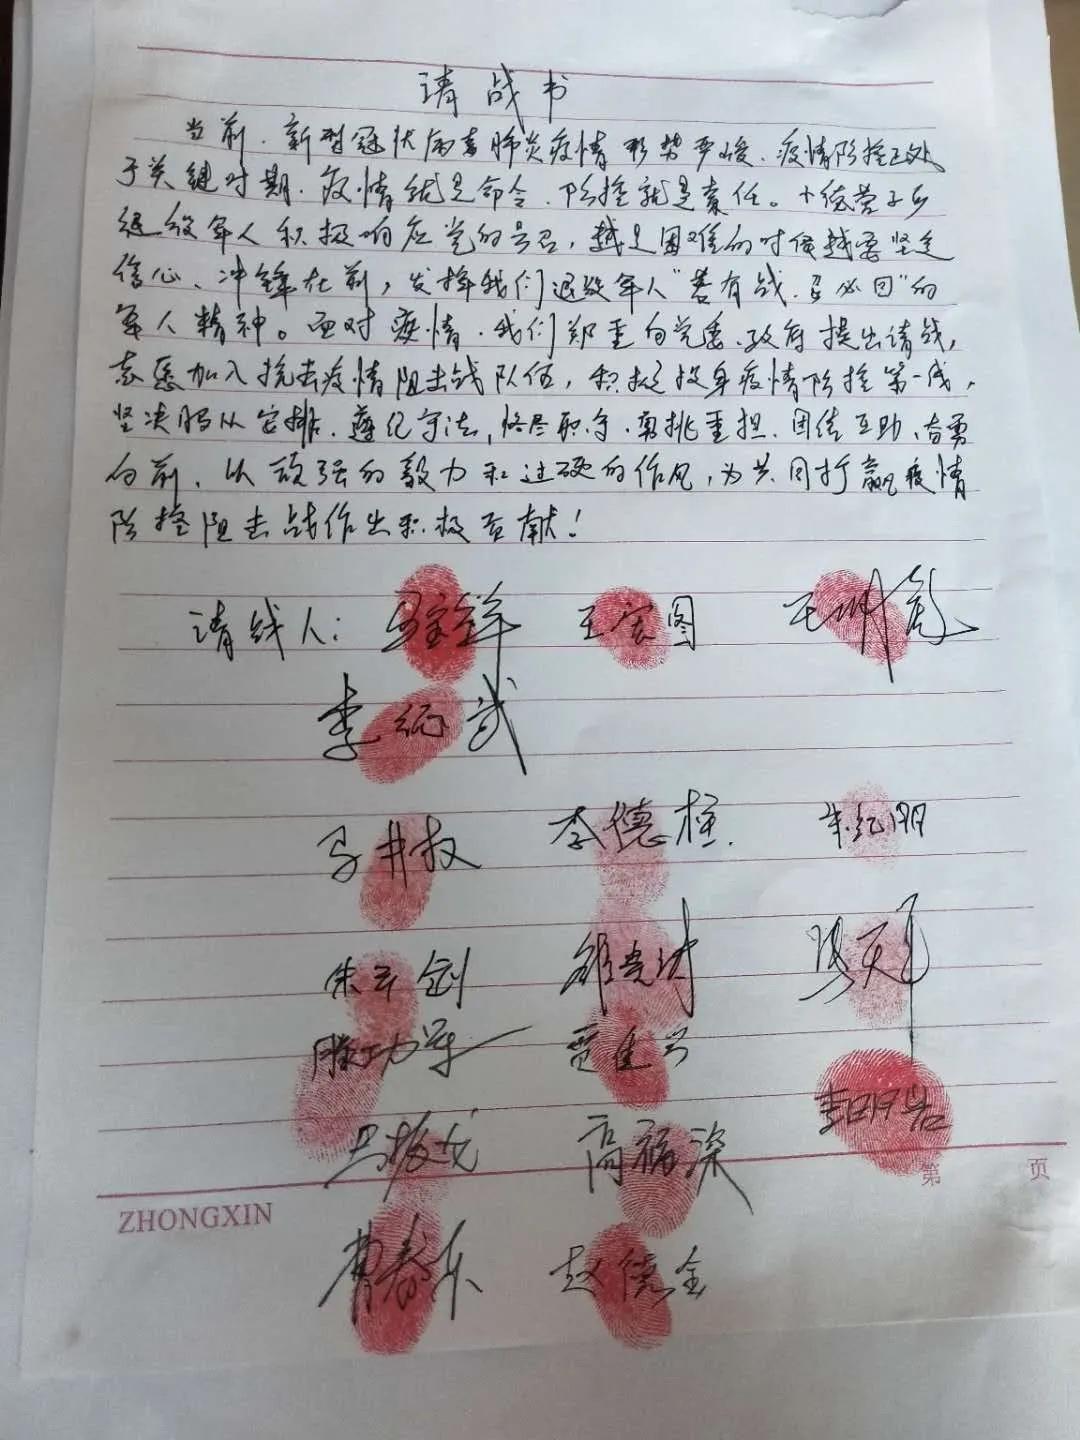 请战书
当前,新型冠状病毒肺炎疫情形势严峻,疫情防控正处
于关键时期,疫情就是命令,防控就是责任。十佐营子乡
退役军人积极响应党的号召,越是困难的时候越要坚定
信心、冲锋在前,发挥我们退役军人“若有战,召必回”的
军人精神。面对疫情,我们郑重向党委、政府提出请战,
志愿加入抗击疫情阻击战队伍,积极投身疫情防控第一线,
坚决服从安排、遵纪守法,恪尽职守、勇挑重担、团结互助、奋勇
向前,以顽强的毅力和过硬的作风,为共同打赢疫情
防控阻击战作出积极贡献!
请战人: 王宏图
李征武
马井权 李德柱
朱云剑
滕功军 贾佳兴
马振龙 高福深 李明岩
曹春东 赵德全
第 页
ZHONGXIN